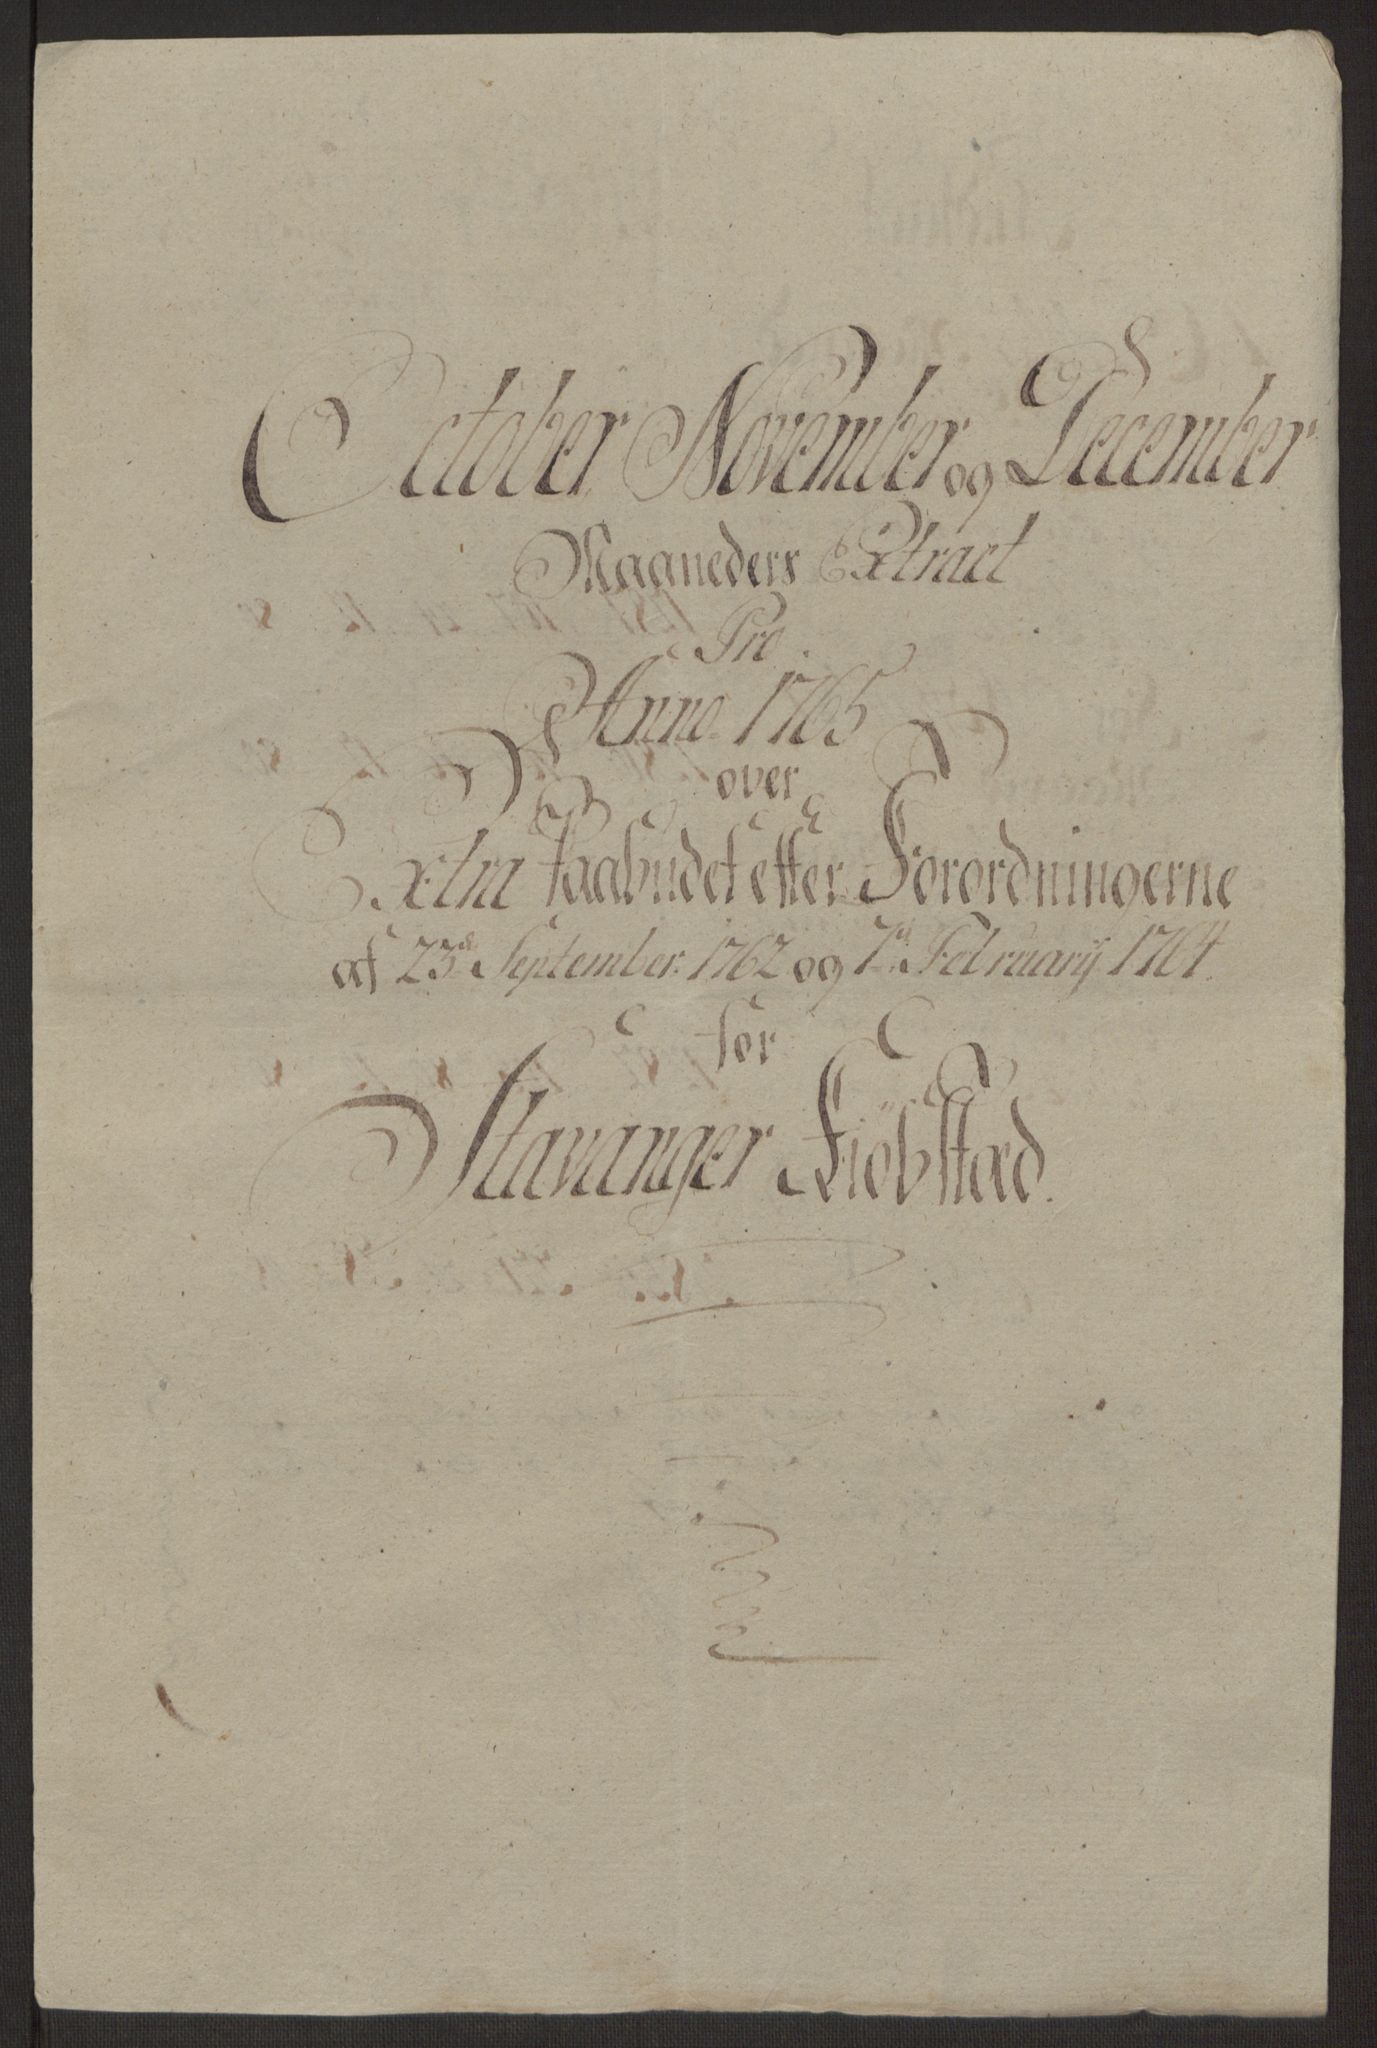 October November og December
Maaneders Extract
Pro
Anno 1765
over
Extra Paabudet efter Forordningerne
af 23d September 1762 og 7d February 1764
for
Stavanger Kiöbstæd.